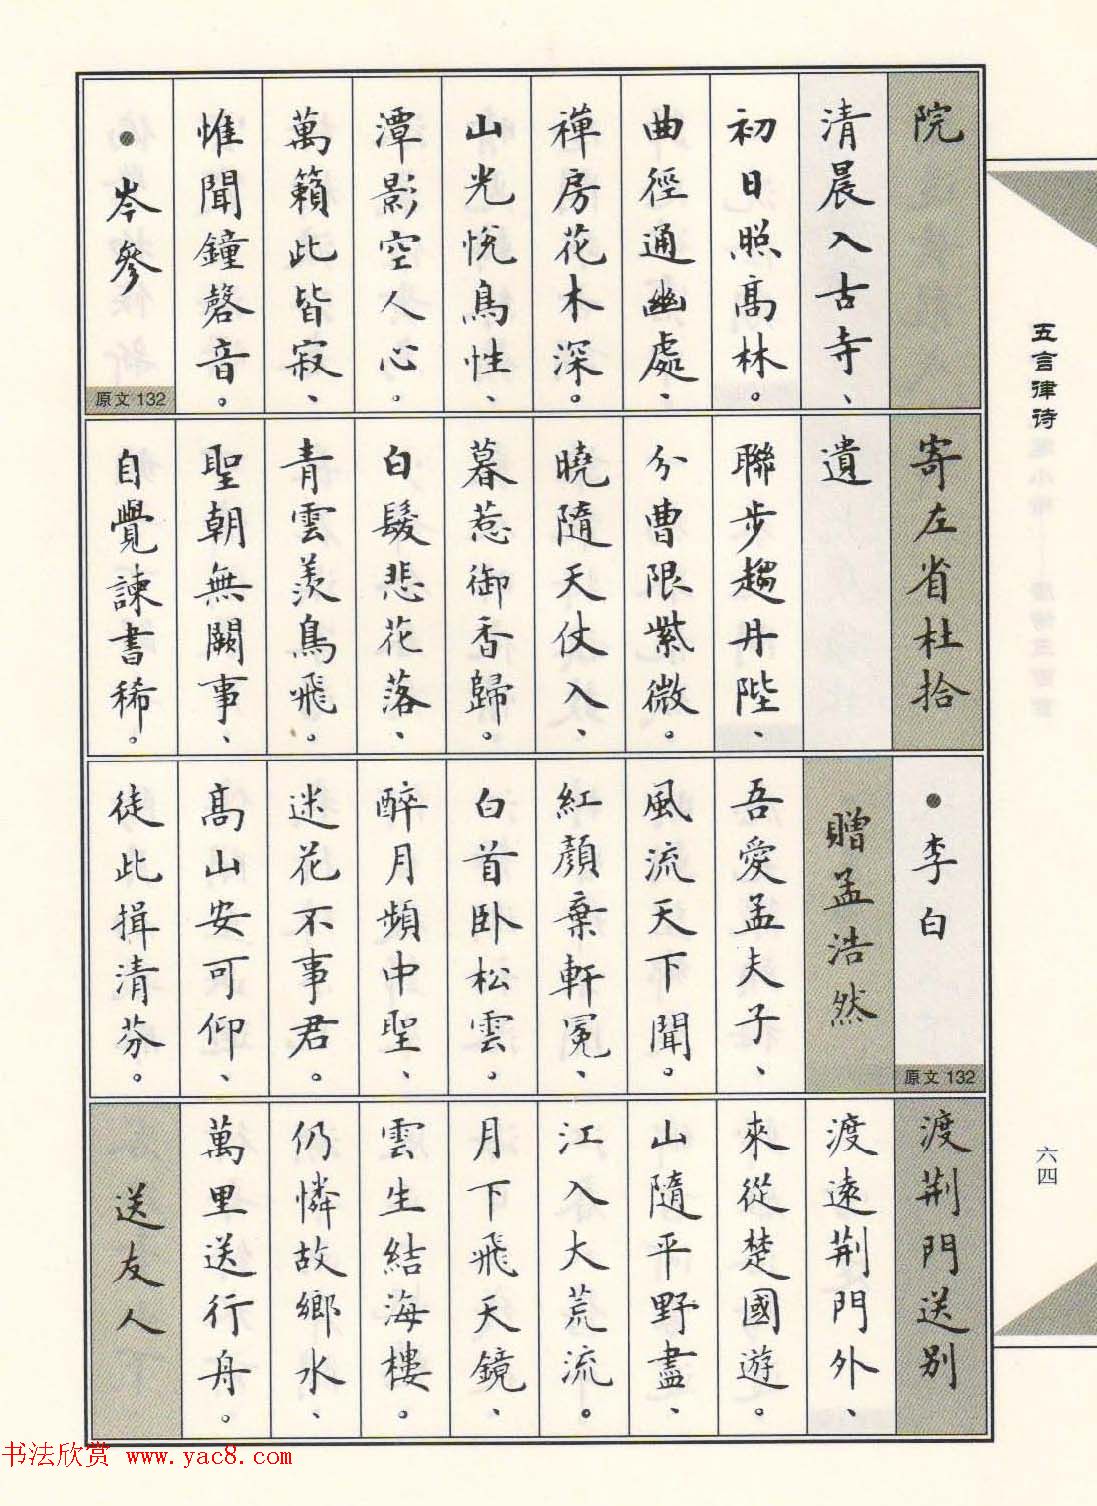 院
清晨入古寺、
初日照高林。
曲徑通幽處、
禪房花木深。
山光悅鳥性、
潭影空人心。
萬籟此皆寂、
惟聞鐘磬音。
●岑參
原文132
寄左省杜拾
遺
聯步趨丹陛、
分曹限紫微。
曉隨天仗入、
暮惹御香歸。
白髮悲花落、
青雲羨鳥飛。
聖朝無闕事、
自覺諫書稀。
●李白
原文132
贈孟浩然
吾愛孟夫子、
風流天下聞。
紅顏棄軒冕、
白首卧松雲。
醉月頻中聖、
迷花不事君。
高山安可仰、
徒此揖清芬。
渡荆門送别
渡遠荆門外、
來從楚國遊。
山隨平野盡、
江入大荒流。
月下飛天鏡、
雲生結海樓。
仍憐故鄉水、
萬里送行舟。
送友人
五言律诗
六四
书法欣赏 www.yac8.com